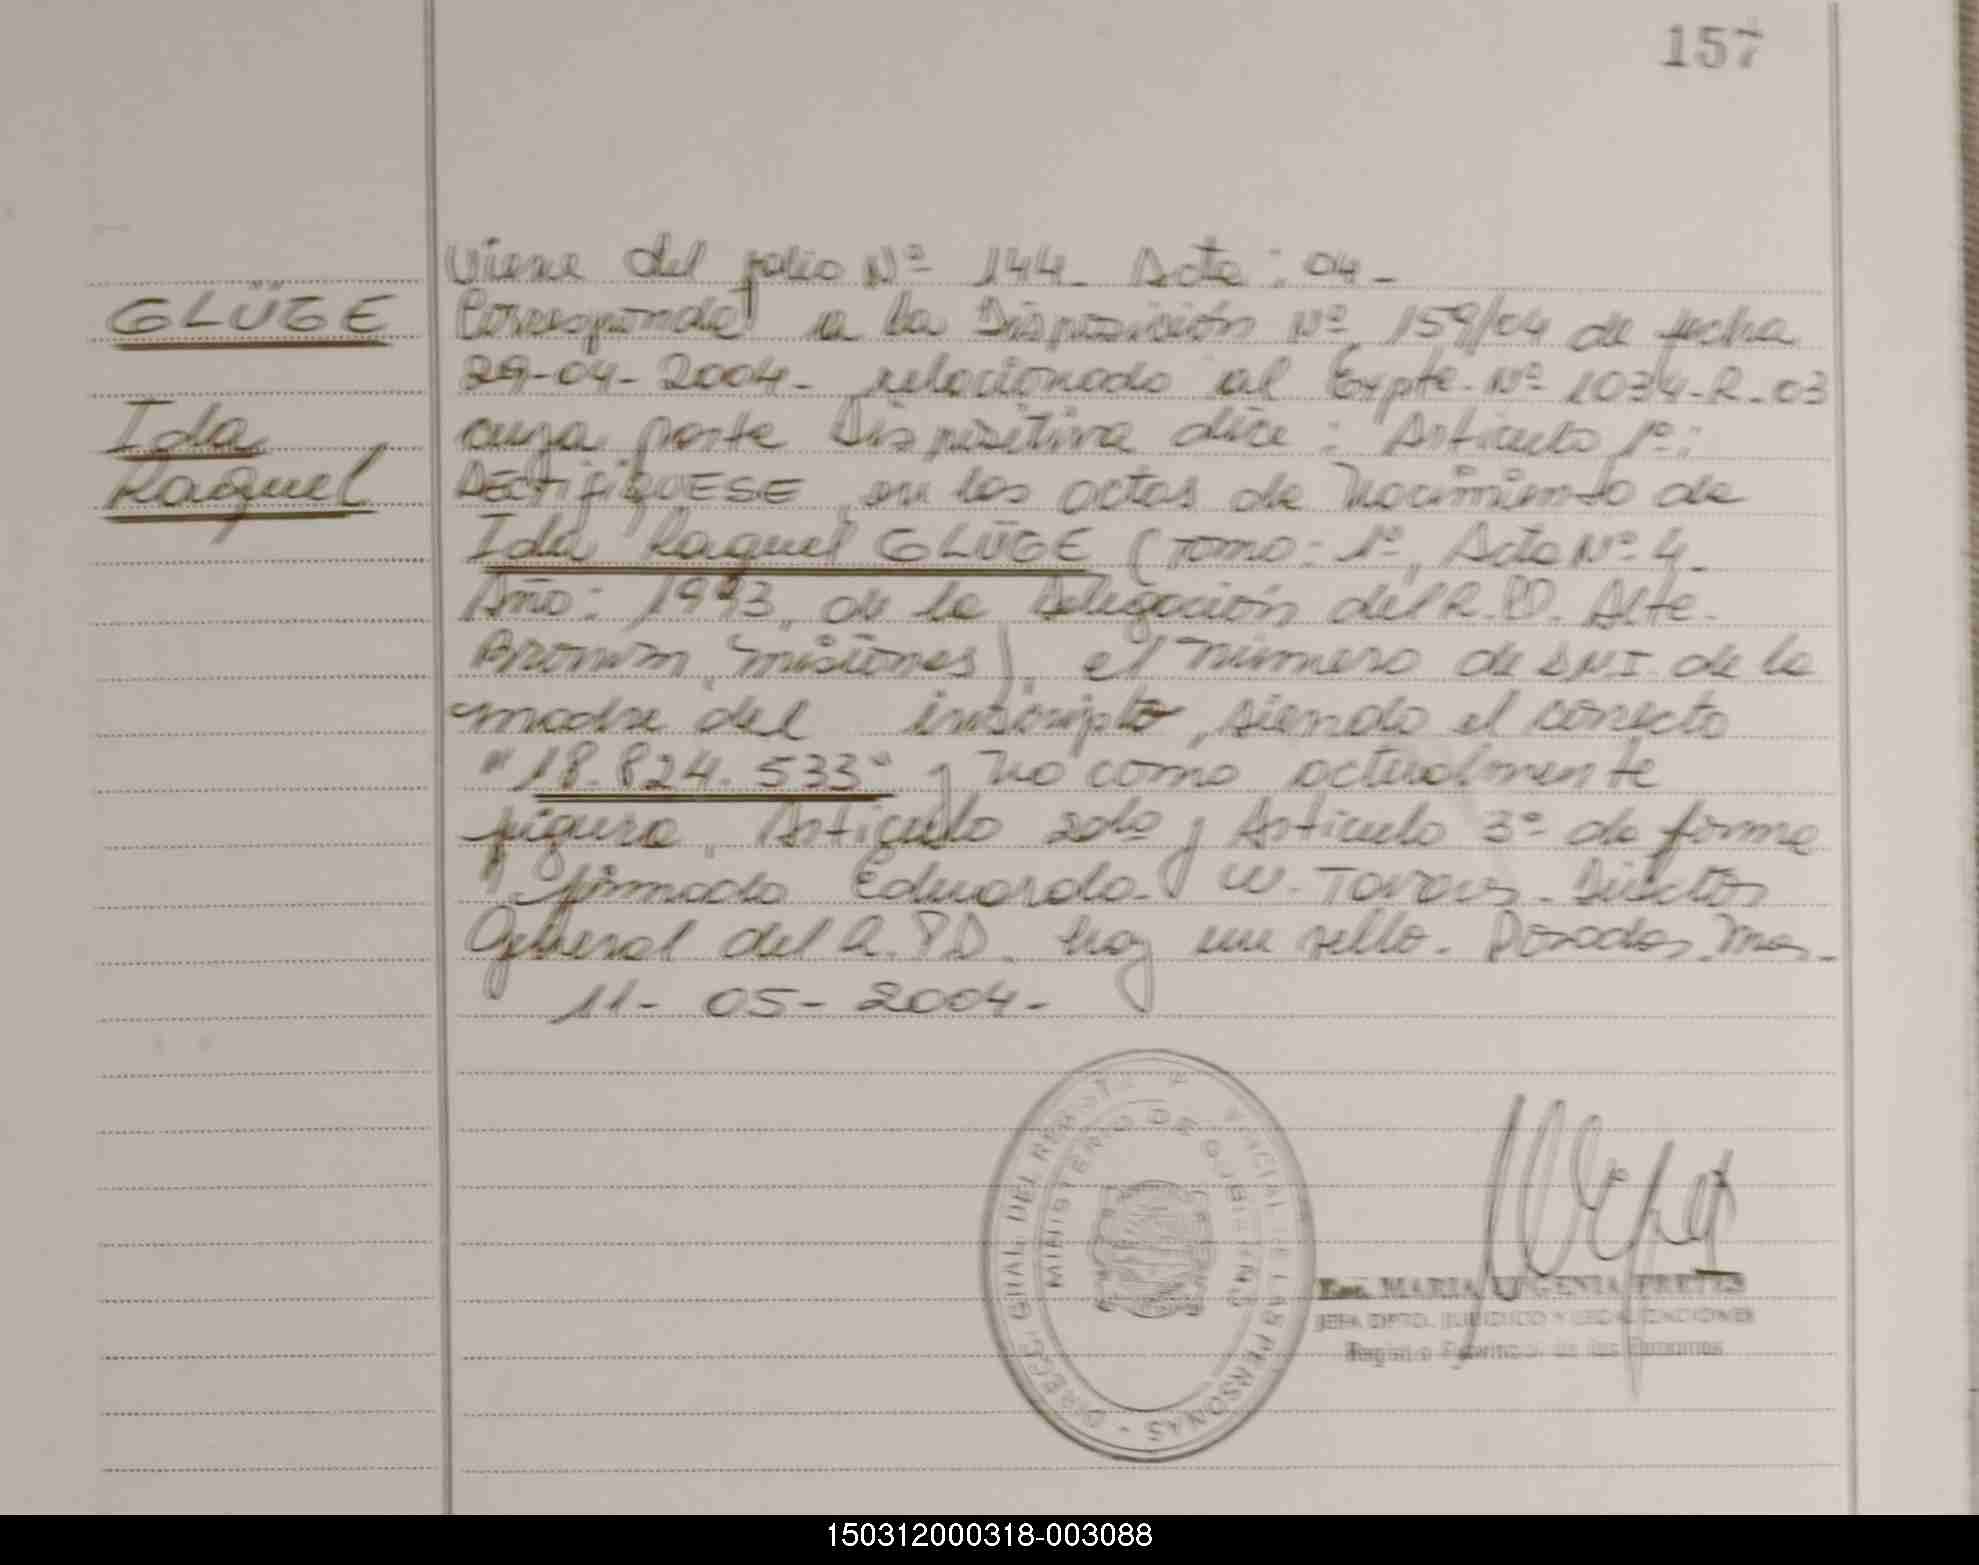 157
Viene del folio Nº 144. Acta: 04-
GLÜGE
Corresponde a la Disposición Nº 159/04 de fecha
29-04-2004- relacionado al Expte. Nº 1034-R-03
Ida
cuya parte Dispositiva dice: Articulo 1º:
Raquel
RECTIFIQUESE, en las actas de Nacimiento de
Ida Raquel GLÜGE (Tomo: 1º, Acta Nº 4.
Año: 1993, de la Delegación del R.P.D. Alte.
Brown, Misiones), el número de DNI de la
madre del inscripto, siendo el correcto
"18.824.533" y no como actualmente
figura. Articulo 2do y Articulo 3º de forma
firmado Eduardo W. Director
General del R.P.D. hay un sello. Posadas, Mnes.
11-05-2004-
MINISTERIO DE GOBIERNO
DIRECC. GRAL. DEL REGIST. DE LAS PERSONAS -
MARIA EUGENIA FRETES
JEFA DPTO. JURIDICO Y LEGALIZACIONES
Registro Provincial de las Personas
150312000318-003088